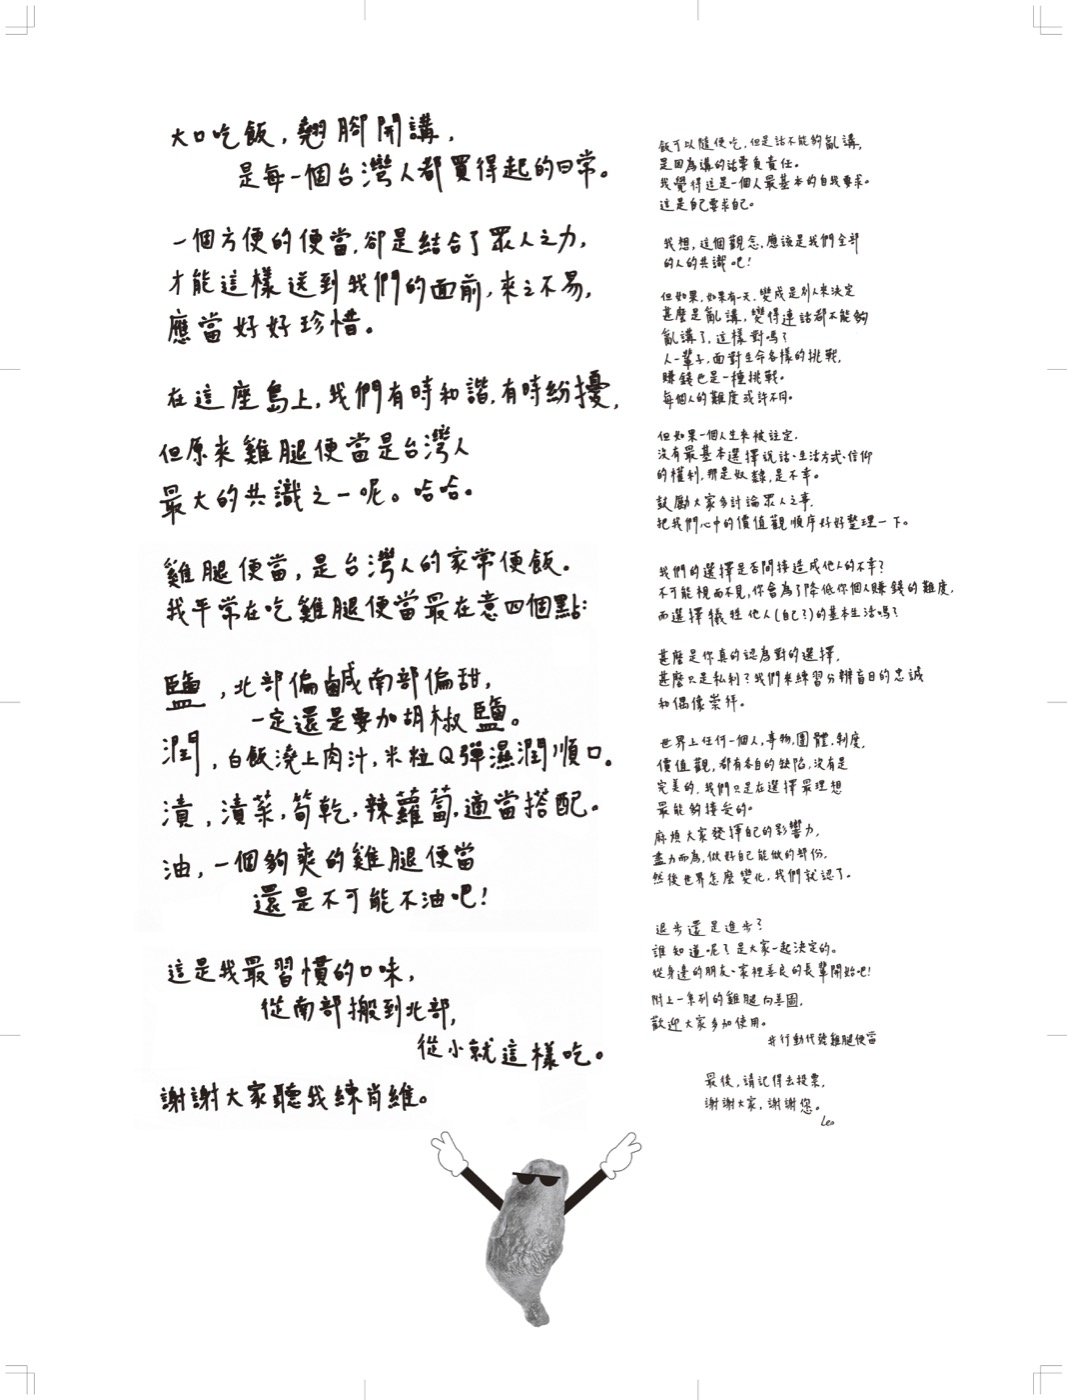 大口吃飯，翹腳開講，
是每一個台灣人都買得起的日常。
一個方便的便當，卻是結合了眾人之力，
才能這樣送到我們的面前，來之不易，
應當好好珍惜。
在這座島上，我們有時和諧，有時紛擾，
但原來雞腿便當是台灣人
最大的共識之一呢。哈哈。
雞腿便當，是台灣人的家常便飯。
我平常在吃雞腿便當最在意四個點：
鹽，北部偏鹹南部偏甜，
一定還是要加胡椒鹽。
潤，白飯澆上肉汁，米粒Q彈濕潤順口。
漬，漬菜，筍乾，辣蘿蔔，適當搭配。
油，一個夠爽的雞腿便當
還是不可能不油吧！
這是我最習慣的口味，
從南部搬到北部，
從小就這樣吃。
謝謝大家聽我練肖維。
飯可以隨便吃，但是話不能夠亂講，
是因為講的話要負責任。
我覺得這是一個人最基本的自我要求。
這是自己要求自己。
我想，這個觀念，應該是我們全部
的人的共識吧！
但如果，如果有一天，變成是別人來決定
甚麼是亂講，變得連話都不能夠
亂講了，這樣對嗎？
人一輩子，面對生命各樣的挑戰，
賺錢也是一種挑戰。
每個人的難度或許不同。
但如果一個人生來被註定，
沒有最基本選擇說話、生活方式、信仰
的權利，那是奴隸，是不幸。
鼓勵大家多討論眾人之事，
把我們心中的價值觀順序好好整理一下。
我們的選擇是否間接造成他人的不幸？
不可能視而不見，你會為了降低你個人賺錢的難度，
而選擇犧牲他人(自己？)的基本生活嗎？
甚麼是你真的認為對的選擇，
甚麼只是私利？我們來練習分辨盲目的忠誠
和偶像崇拜。
世界上任何一個人，事物，團體，制度，
價值觀，都有各自的缺陷，沒有是
完美的，我們只是在選擇最理想
最能夠接受的。
麻煩大家發揮自己的影響力，
盡力而為，做好自己能做的部份，
然後世界怎麼變化，我們就認了。
退步還是進步？
誰知道呢？是大家一起決定的。
從身邊的朋友、家裡善良的長輩開始吧！
附上一系列的雞腿向美圖，
歡迎大家多加使用。
#行動代號雞腿便當
最後，請記得去投票，
謝謝大家，謝謝您。
Leo